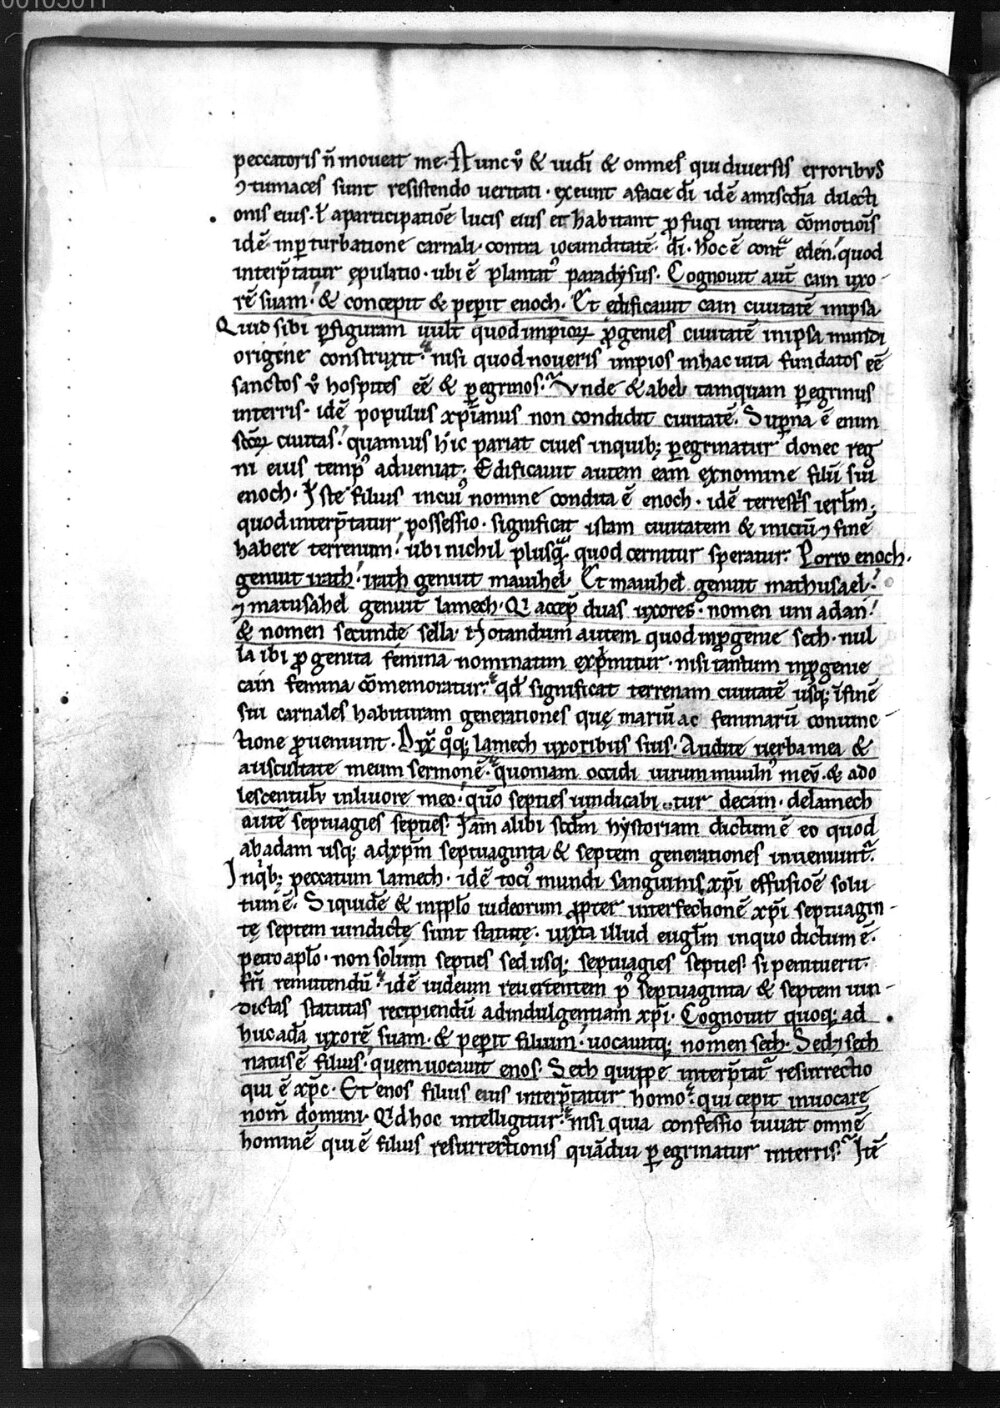 peccatoris n̄ moueat me. Nunc ꝟ & iudi & omnes qui diuersis erroribus
ꝯtumaces sunt resistendo ueritati. exeunt a facie dī idē amisedia dilecti
onis eius. ł a participatiōe lucis eius et habitant ꝓfugi in terra cōmotiōis
idē in ꝑturbatione carnali. contra iocunditatē dī. hoc ē cont̃ eden. quod
interp̄tatur epulatio. ubi ē plantatꝰ paradysus. Cognouit aut̄ cain uxo
rē suam. & concepit & peperit enoch. Et edificauit cain ciuitatē in ipsa
Quid sibi ꝑ figuram uult quod impioꝝ ꝓgenies ciuitatē in ipsa mundi
origine construxit. nisi quod noueris impios in hac uita fundatos eē
sanctos ꝟ hospites eē & ꝑegrinos. Vnde & abel tamquam ꝑegrinus
in terris. idē populus xp̄ianus non condidit ciuitatē. Suꝑna ē enim
scōꝝ ciuitas. quamuis hic pariat ciues in quibꝫ ꝑegrinatur donec reg
ni eius tempꝰ adueniat. Edificauit autem eam ex nomine filii sui
enoch. Iste filius in cuiꝰ nomine condita ē enoch. idē terrest̄s ierłm.
quod interp̄tatur possessio. significat istam ciuitatem & initiū ꝯ finē
habere terrenum. ubi nichil plusq̃ quod cernitur speratur. Porro enoch.
genuit irath. irath genuit mauihel. Et mauihel genuit mathusael.
ꝯ matusahel genuit lamech. Qi accep̄ duas uxores. nomen uni adan.
& nomen secunde sella. Notandum autem quod in ꝓgenie seth. nul
la ibi ꝓgenita femina nominatim exp̄mitur. nisi tantum in ꝓgenie
cain femina cōmemoratur. qđ significat terrenam ciuitatē usqꝫ ī finē
sui carnales habituram generationes quę mariū ac feminarū coniunc
tione ꝓueniunt. Dix̄ q̊qꝫ lamech uxoribus suis. Audite uerba mea &
auscultate meum sermonē. quoniam occidi uirum in uulnꝰ meū. & ado
lescentulū in liuore meo. quō septies uindicabitur de cain. de lamech
autē septuagies septies. Iam alibi scđm hystoriam dictum ē eo quod
ab adam usqꝫ ad xp̄m septuaginta & septem generationes inueniunt̃.
In q̇bꝫ peccatum lamech. idē totiꝰ mundi sanguinis xp̄i effusiōe solu
tum ē. Siquidē & in pplo iudeorum ꝓpter interfectionē xp̄i septuagin
tę septem uindictę sunt statutę. iuxta illud euglm in quo dictum ē.
petro aplo. non solum septies sed usqꝫ septuagies septies. si penituerit.
fr̄i remittendū. idē iudeum reuertentem pꝰ septuaginta & septem uin
dictas statutas recipiendū ad indulgentiam xp̄i. Cognouit quoqꝫ ad
huc adā uxorē suam. & peperit filium. uocauitqꝫ nomen seth. Sed ꝯ seth
natus ē filius. quem uocauit enos. Seth quippe interp̄tat̃ resurrectio
qui ē xp̄c. Et enos filius eius interp̄tatur homo. qui cepit inuocare
nom̄ domini. Qd hoc intelligitur. nisi quia confessio iuuat omnē
hominē qui ē filius resurrectionis quādiu ꝑegrinatur in terris. Itē